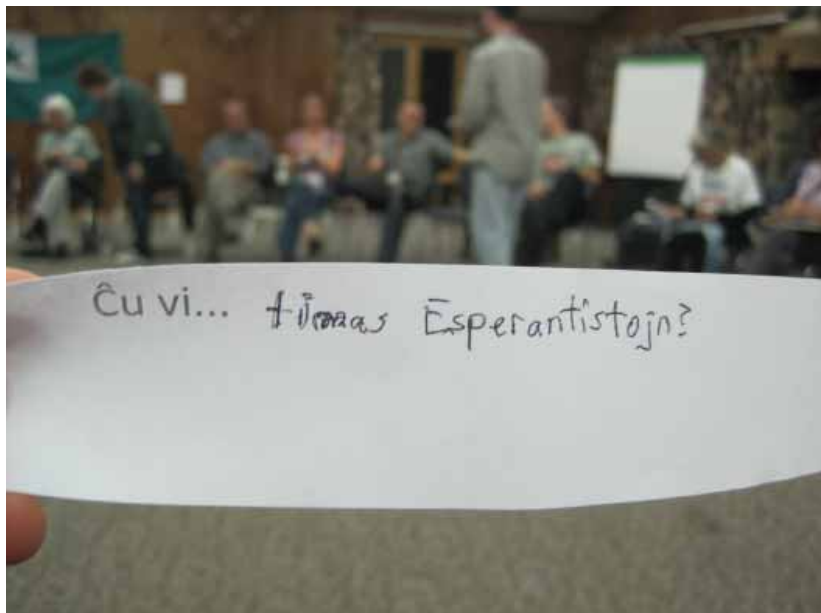 Ĉu vi... timas Esperantistojn?